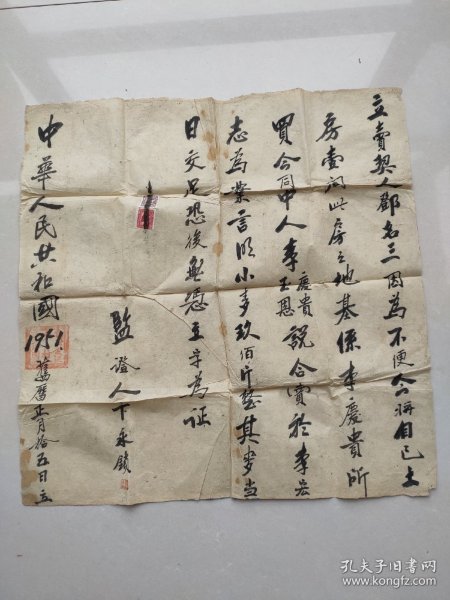 立賣契人鄧名三因為不便今將自己土
房壹间此房之地基係李慶貴所
買今同中人李慶貴玉恩說合賣於李宏
志為業言明小麦玖佰斤整其麥当
日交足恐後無憑立字為证
監證人卞永鎖
中華人民共和國1951舊曆正月拾五日立
孔夫子旧书网
www.kongfz.com